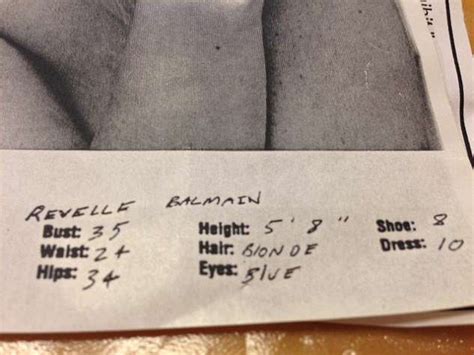 REVELLE BALMAIN
Bust: 35 Height: 5' 8" Shoe: 8
Waist: 24 Hair: BLONDE Dress: 10
Hips: 34 Eyes: BLUE